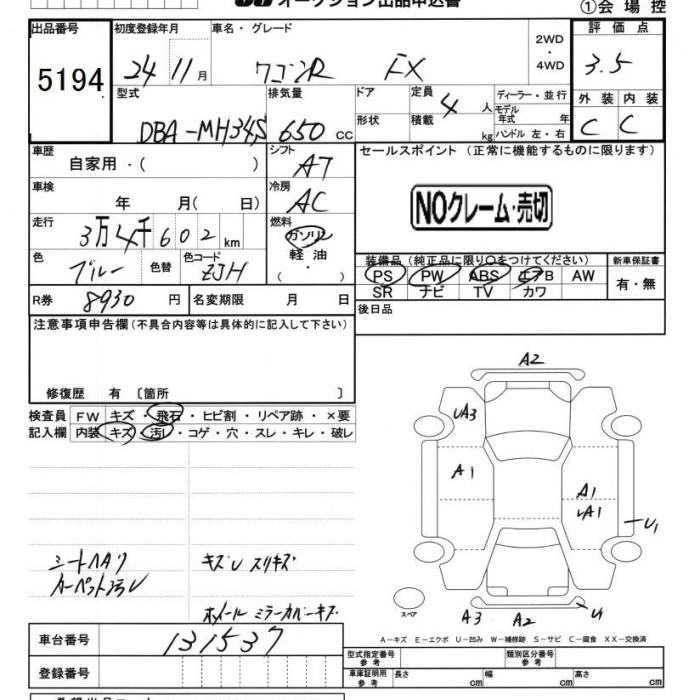 オークション出品申込書
①会場控
出品番号
5194
初度登録年月
24 11月
車名・グレード
ワゴンR FX
2WD
・
4WD
評価点
3.5
型式
DBA-MH34S
排気量
650 CC
ドア
形状
定員
4 人
積載
kg
ディーラー・並行
モデル年式 年
ハンドル 左・右
外装 内装
C C
車歴
自家用・(
シフト
AT
セールスポイント (正常に機能するものに限ります)
NOクレーム・売切
車検
年 月( 日)
冷房
AC
走行
3万4千602km
燃料
ガソリン
軽油
( )
色
ブルー
色替
色コード
ZJH
装備品 (純正品に限り○をつけてください)
PS PW ABS エアB AW
SR ナビ TV カワ
新車保証書
有・無
R券
8930 円
名変期限 月 日
後日品
注意事項申告欄(不具合内容等は具体的に記入して下さい)
修復歴 有 〔箇所 〕
検査員記入欄
FW キズ・飛石・ヒビ割・リペア跡・×要
内装 キズ・汚レ・コゲ・穴・スレ・キレ・破レ
カーペット汚レ
ホイール ミラーカバーキズ
A2
UA3
A1
A1
A1
U1
A3 A2 U1
スペア
A-キズ E-エクボ U-凹み W-補修跡 S-サビ C-腐食 XX-交換済
車台番号
131537
登録番号
型式指定番号
参考
類別区分番号
参考
車庫証明用
参考
長さ cm
幅 cm
高さ cm